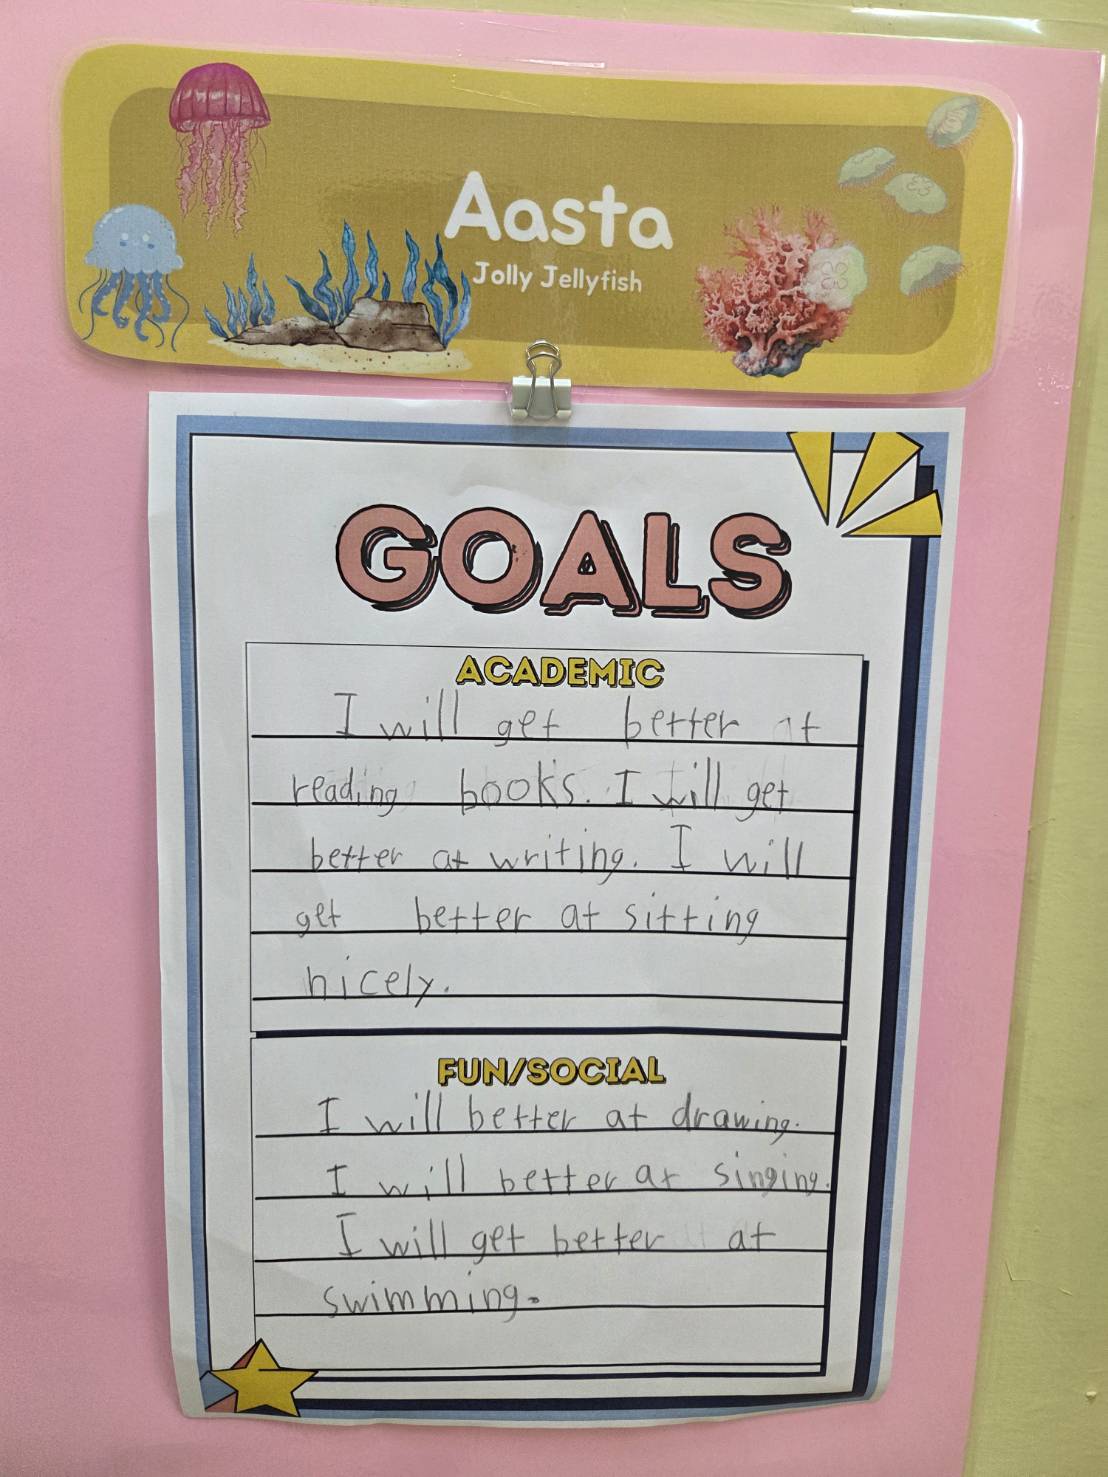 Aasta
Jolly Jellyfish
GOALS
ACADEMIC
I will get better at
reading books. I will get
better at writing. I will
get better at sitting
nicely.
FUN/SOCIAL
I will better at drawing.
I will better at singing.
I will get better at
swimming.